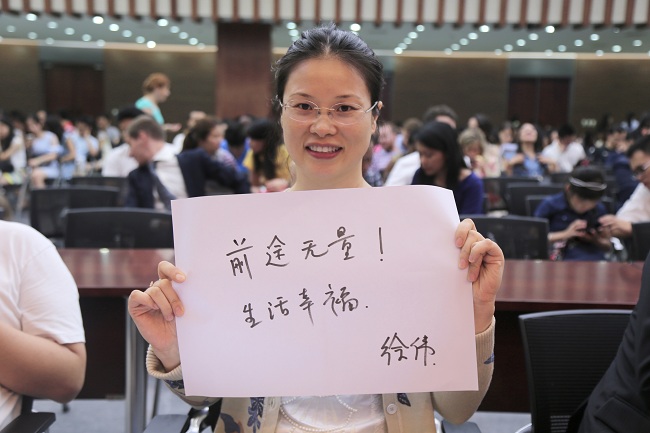 前途无量!
生活幸福.
徐伟.